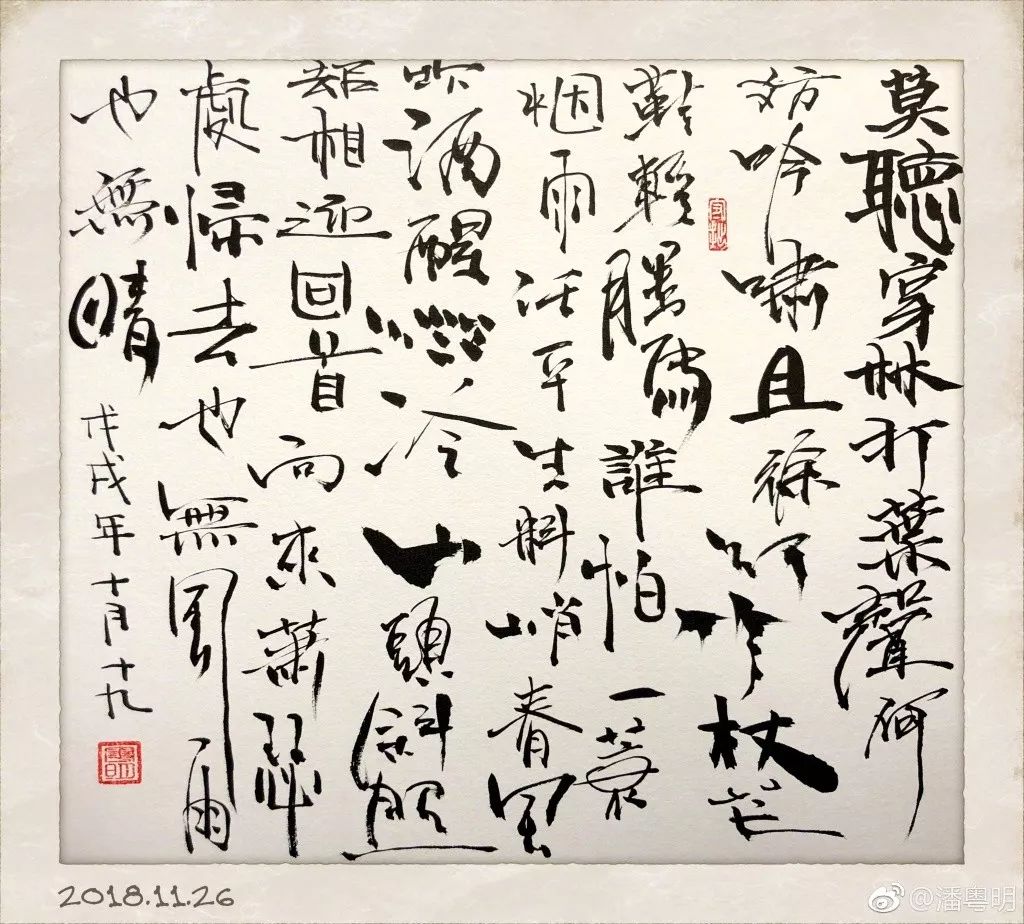 莫聽穿林打葉聲何
妨吟嘯且徐行竹杖芒
鞋輕勝馬誰怕一蓑
烟雨任平生料峭春風
吹酒醒微冷山頭斜照
却相迎回首向來蕭瑟
處歸去也無風雨
也無晴
戊戌年十月十九
2018.11.26
@潘粤明